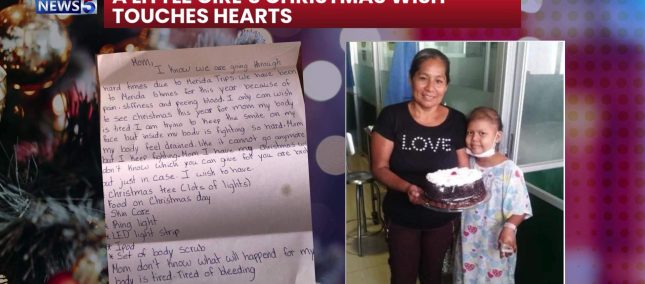 NEWS 5
A LITTLE GIRL'S CHRISTMAS WISH
TOUCHES HEARTS
Mom,
I know we are going through
hard times due to Merida Trips. We have been
to Merida 6times for this year because of
pain, stiffness and peeing blood. I only can wish
to see christmas this year for mom my body
is tired I am trying to keep this smile on my
face but inside my body is fighting so hard. Mom
my body feel drained like it cannot go anymore
but I keep fighting. Mom I have my christmas
don't know which you can give
but just in case. I wish to have
christmas tree (lots of lights)
Food on Christmas day
Skin Care
* Ring light
* LED light strip
* Ipad
* Set of body scrub
Mom don't know what will happend for my
body is tired. Tired of bleeding
LOVE